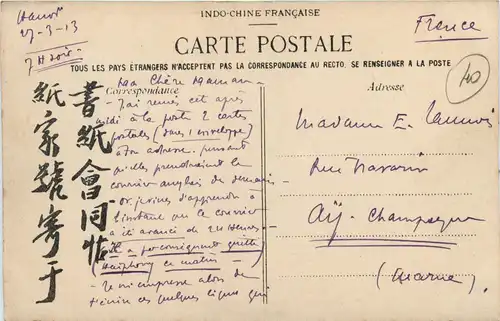 INDO-CHINE FRANÇAISE
Hanoi
27-3-13
7H soir
France
CARTE POSTALE
TOUS LES PAYS ÉTRANGERS N'ACCEPTENT PAS LA CORRESPONDANCE AU RECTO. SE RENSEIGNER A LA POSTE
Correspondance
Adresse
40
Ma Chère Maman -
- J'ai remis cet après
midi à la poste 2 cartes
postales (dans 1 enveloppe)
à ton adresse pensant
qu'elles prendraient le
courrier anglais de demain -
- or je viens d'apprendre à
l'instant que le courrier
a été avancé de 24 heures -
il a par conséquent quitté
Haiphong ce matin -
- Je m'empresse alors de
t'écrire ces quelques lignes qui
Madame E.
Rue Navarin
Aÿ - Champagne
(Marne)
書紙會同帖
紙家號寄于